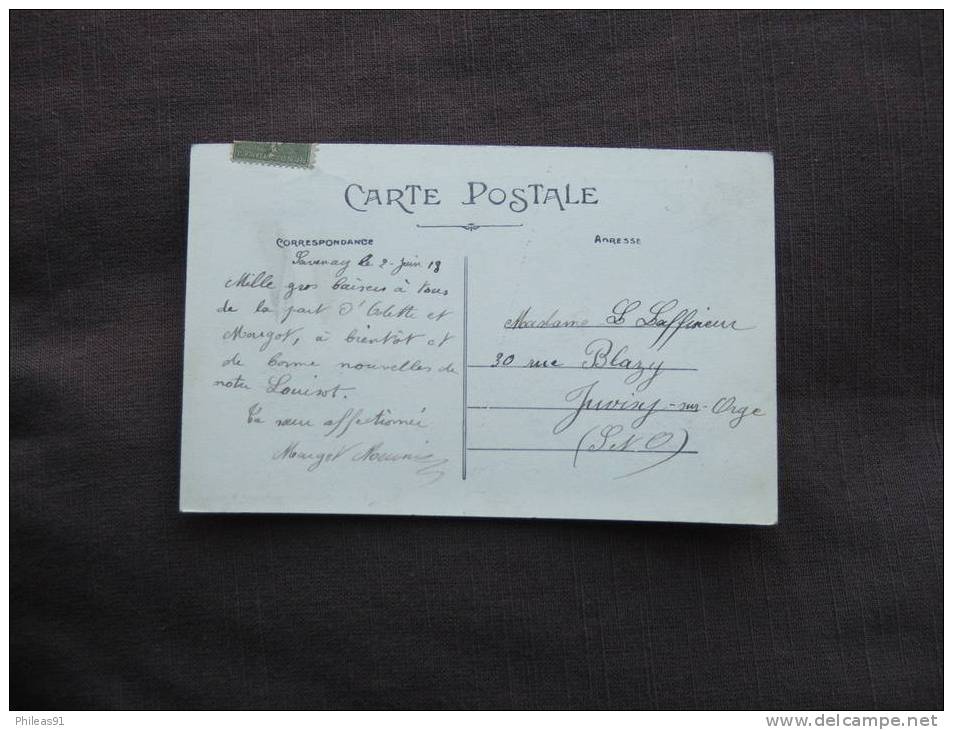 CARTE POSTALE
CORRESPONDANCE
Savenay le 2 - Juin 18
Mille gros baisers à tous
de la part d'Odette et
Margot, à bientôt et
de bonne nouvelles de
notre Louisot.
Ta sœur affectionné
Margot
ADRESSE
Madame L Laffineur
30 rue Blazy
Juvisy-sur-Orge
(S et O)
Phileas91
www.delcampe.net